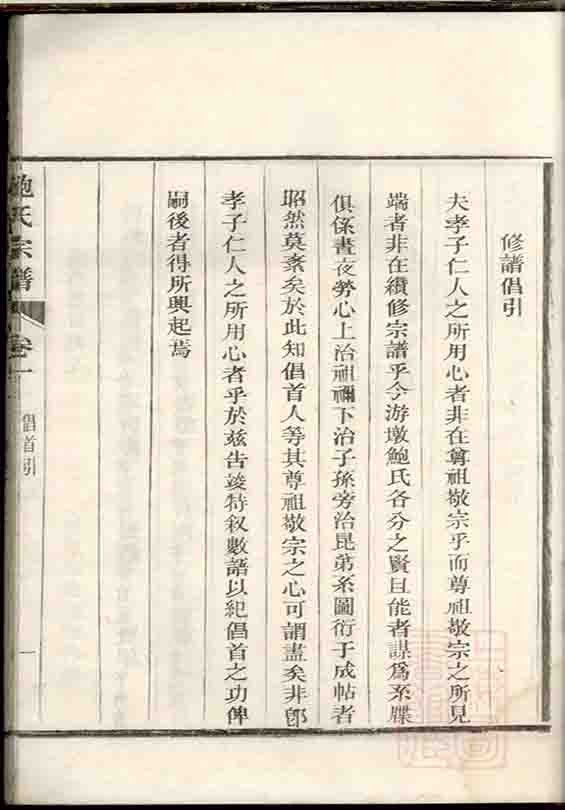 修譜倡引
夫孝子仁人之所用心者非在尊祖敬宗乎而尊祖敬宗之所見
端者非在纘修宗譜乎今游墩鮑氏各分之賢且能者謀為系牒
俱係晝夜勞心上治祖禰下治子孫旁治昆弟系圖衍于成帖者
昭然莫紊矣於此知倡首人等其尊祖敬宗之心可謂盡矣非卽
孝子仁人之所用心者乎於茲告竣特叙數語以紀倡首之功俾
嗣後者得所興起焉
鮑氏宗譜
卷一
倡首引
一